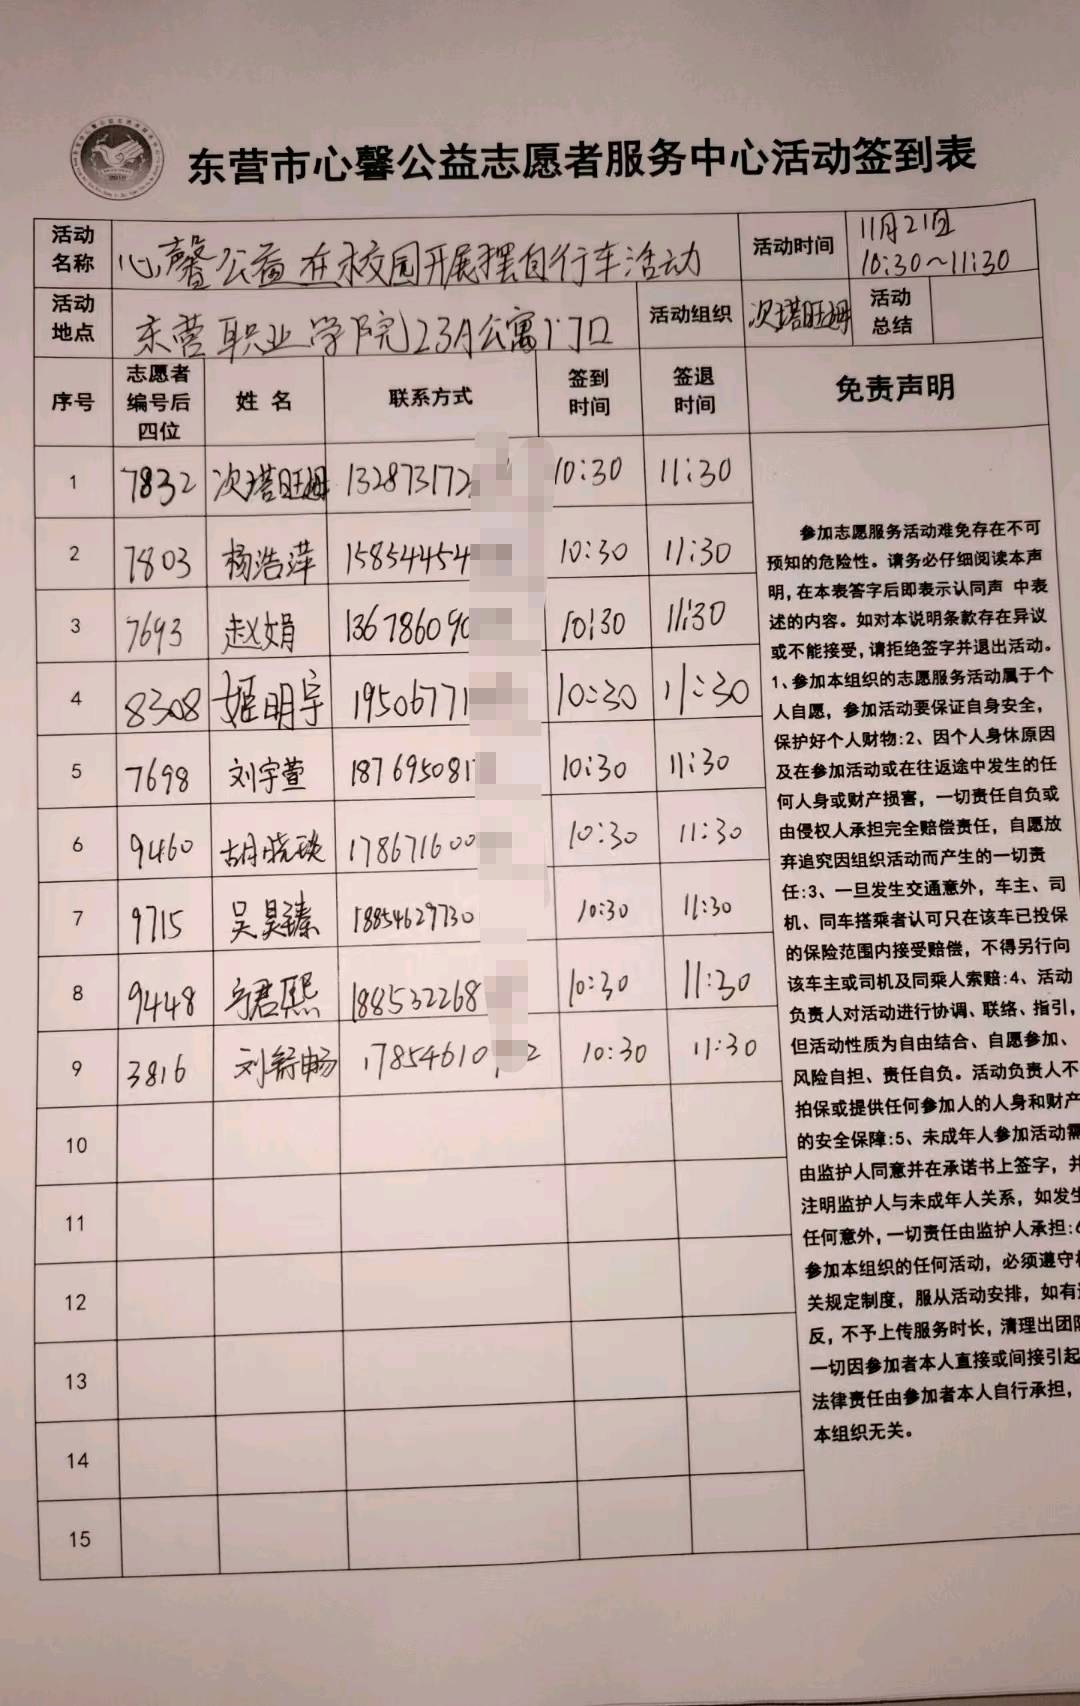 东营市心馨公益志愿者服务中心活动签到表
活动名称 心馨公益在校园开展摆自行车活动 活动时间 11月21日 10:30~11:30
活动地点 东营职业学院23A公寓门口 活动组织 次塔旺姆 活动总结
序号 志愿者编号后四位 姓名 联系方式 签到时间 签退时间 免责声明
1 7832 次塔旺姆 132873172 10:30 11:30
2 7803 杨浩萍 15854454 10:30 11:30
3 7693 赵娟 136786090 10:30 11:30
4 8308 姬明宇 19506771 10:30 11:30
5 7698 刘宇萱 187695081 10:30 11:30
6 9460 胡晓琰 178671600 10:30 11:30
7 9715 吴昊臻 18854629730 10:30 11:30
8 9448 君熙 188532268 10:30 11:30
9 3816 刘舒畅 17854610 2 10:30 11:30
10
11
12
13
14
15
参加志愿服务活动难免存在不可
预知的危险性。请务必仔细阅读本声
明,在本表签字后即表示认同声 中表
述的内容。如对本说明条款存在异议
或不能接受,请拒绝签字并退出活动。
1、参加本组织的志愿服务活动属于个
人自愿，参加活动要保证自身安全，
保护好个人财物:2、因个人身休原因
及在参加活动或在往返途中发生的任
何人身或财产损害，一切责任自负或
由侵权人承担完全赔偿责任，自愿放
弃追究因组织活动而产生的一切责
任:3、一旦发生交通意外，车主、司
机、同车搭乘者认可只在该车已投保
的保险范围内接受赔偿，不得另行向
该车主或司机及同乘人索赔:4、活动
负责人对活动进行协调、联络、指引，
但活动性质为自由结合、自愿参加、
风险自担、责任自负。活动负责人不
拍保或提供任何参加人的人身和财产
的安全保障:5、未成年人参加活动需
由监护人同意并在承诺书上签字，并
注明监护人与未成年人关系，如发生
任何意外,一切责任由监护人承担:6
参加本组织的任何活动，必须遵守相
关规定制度，服从活动安排，如有违
反，不予上传服务时长，清理出团队
一切因参加者本人直接或间接引起
法律责任由参加者本人自行承担，
本组织无关。